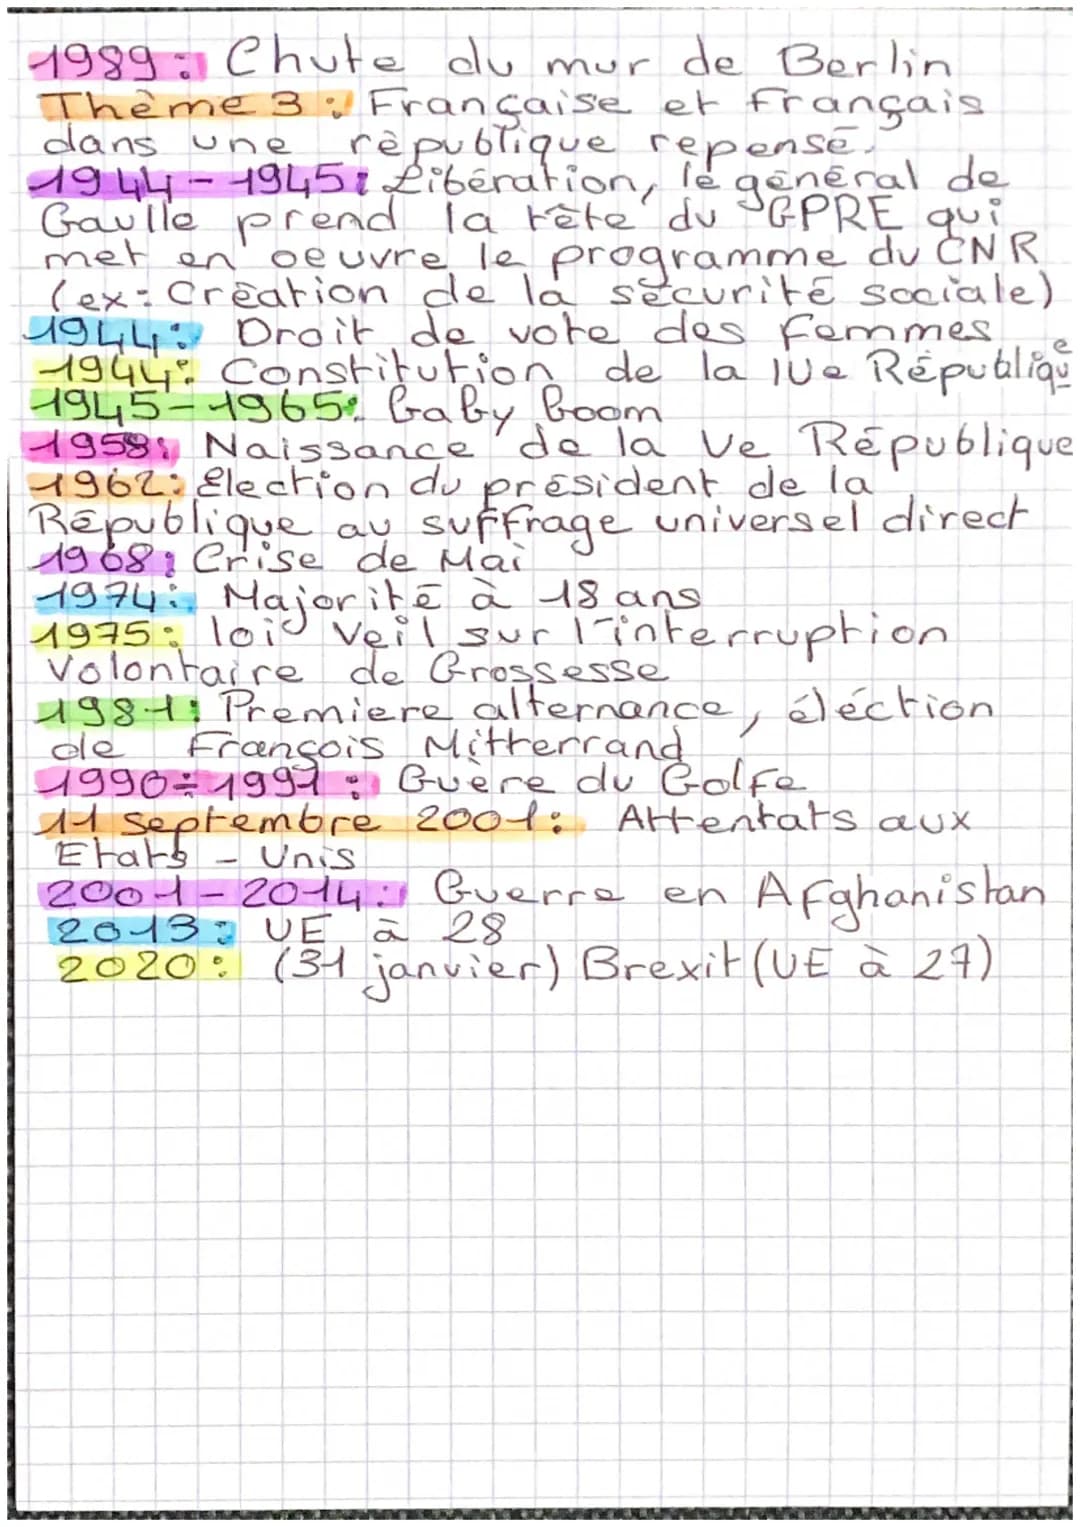 1989: Chute du mur de Berlin
Thème 3: Française et français
dans une rèpublique repensé.
1944-1945: Libération, le général de
Gaulle prend la tête du GPRE qui
met en oeuvre le programme du CNR
(ex: Création de la sécurité sociale)
1944: Droit de vote des femmes
1944: Constitution de la IVe République
1945-1965: Baby boom
1958: Naissance de la Ve République
1962: élection du président de la
République au suffrage universel direct
1968: Crise de Mai
1974: Majorité à 18 ans
1975: loi Veil sur l'interruption
Volontaire de Grossesse
1981: Premiere alternance, éléction
de François Mitterrand
1990-1991: Guère du Golfe
11 septembre 2001: Attentats aux
Etats-Unis
2001-2014: Guerre en Afghanistan
2013: UE à 28
2020: (31 janvier) Brexit (UE à 27)